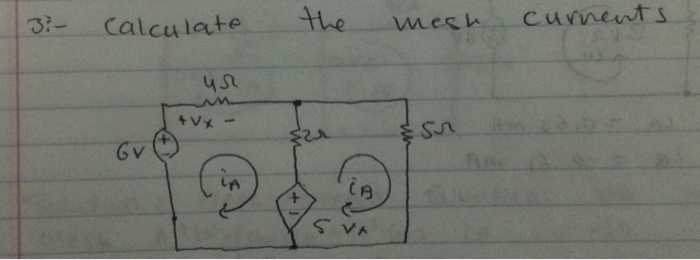 3:- Calculate the mesh currents
4Ω
+ Vx -
6V
+
-
2Ω
5Ω
iA
iB
+
-
5 VA